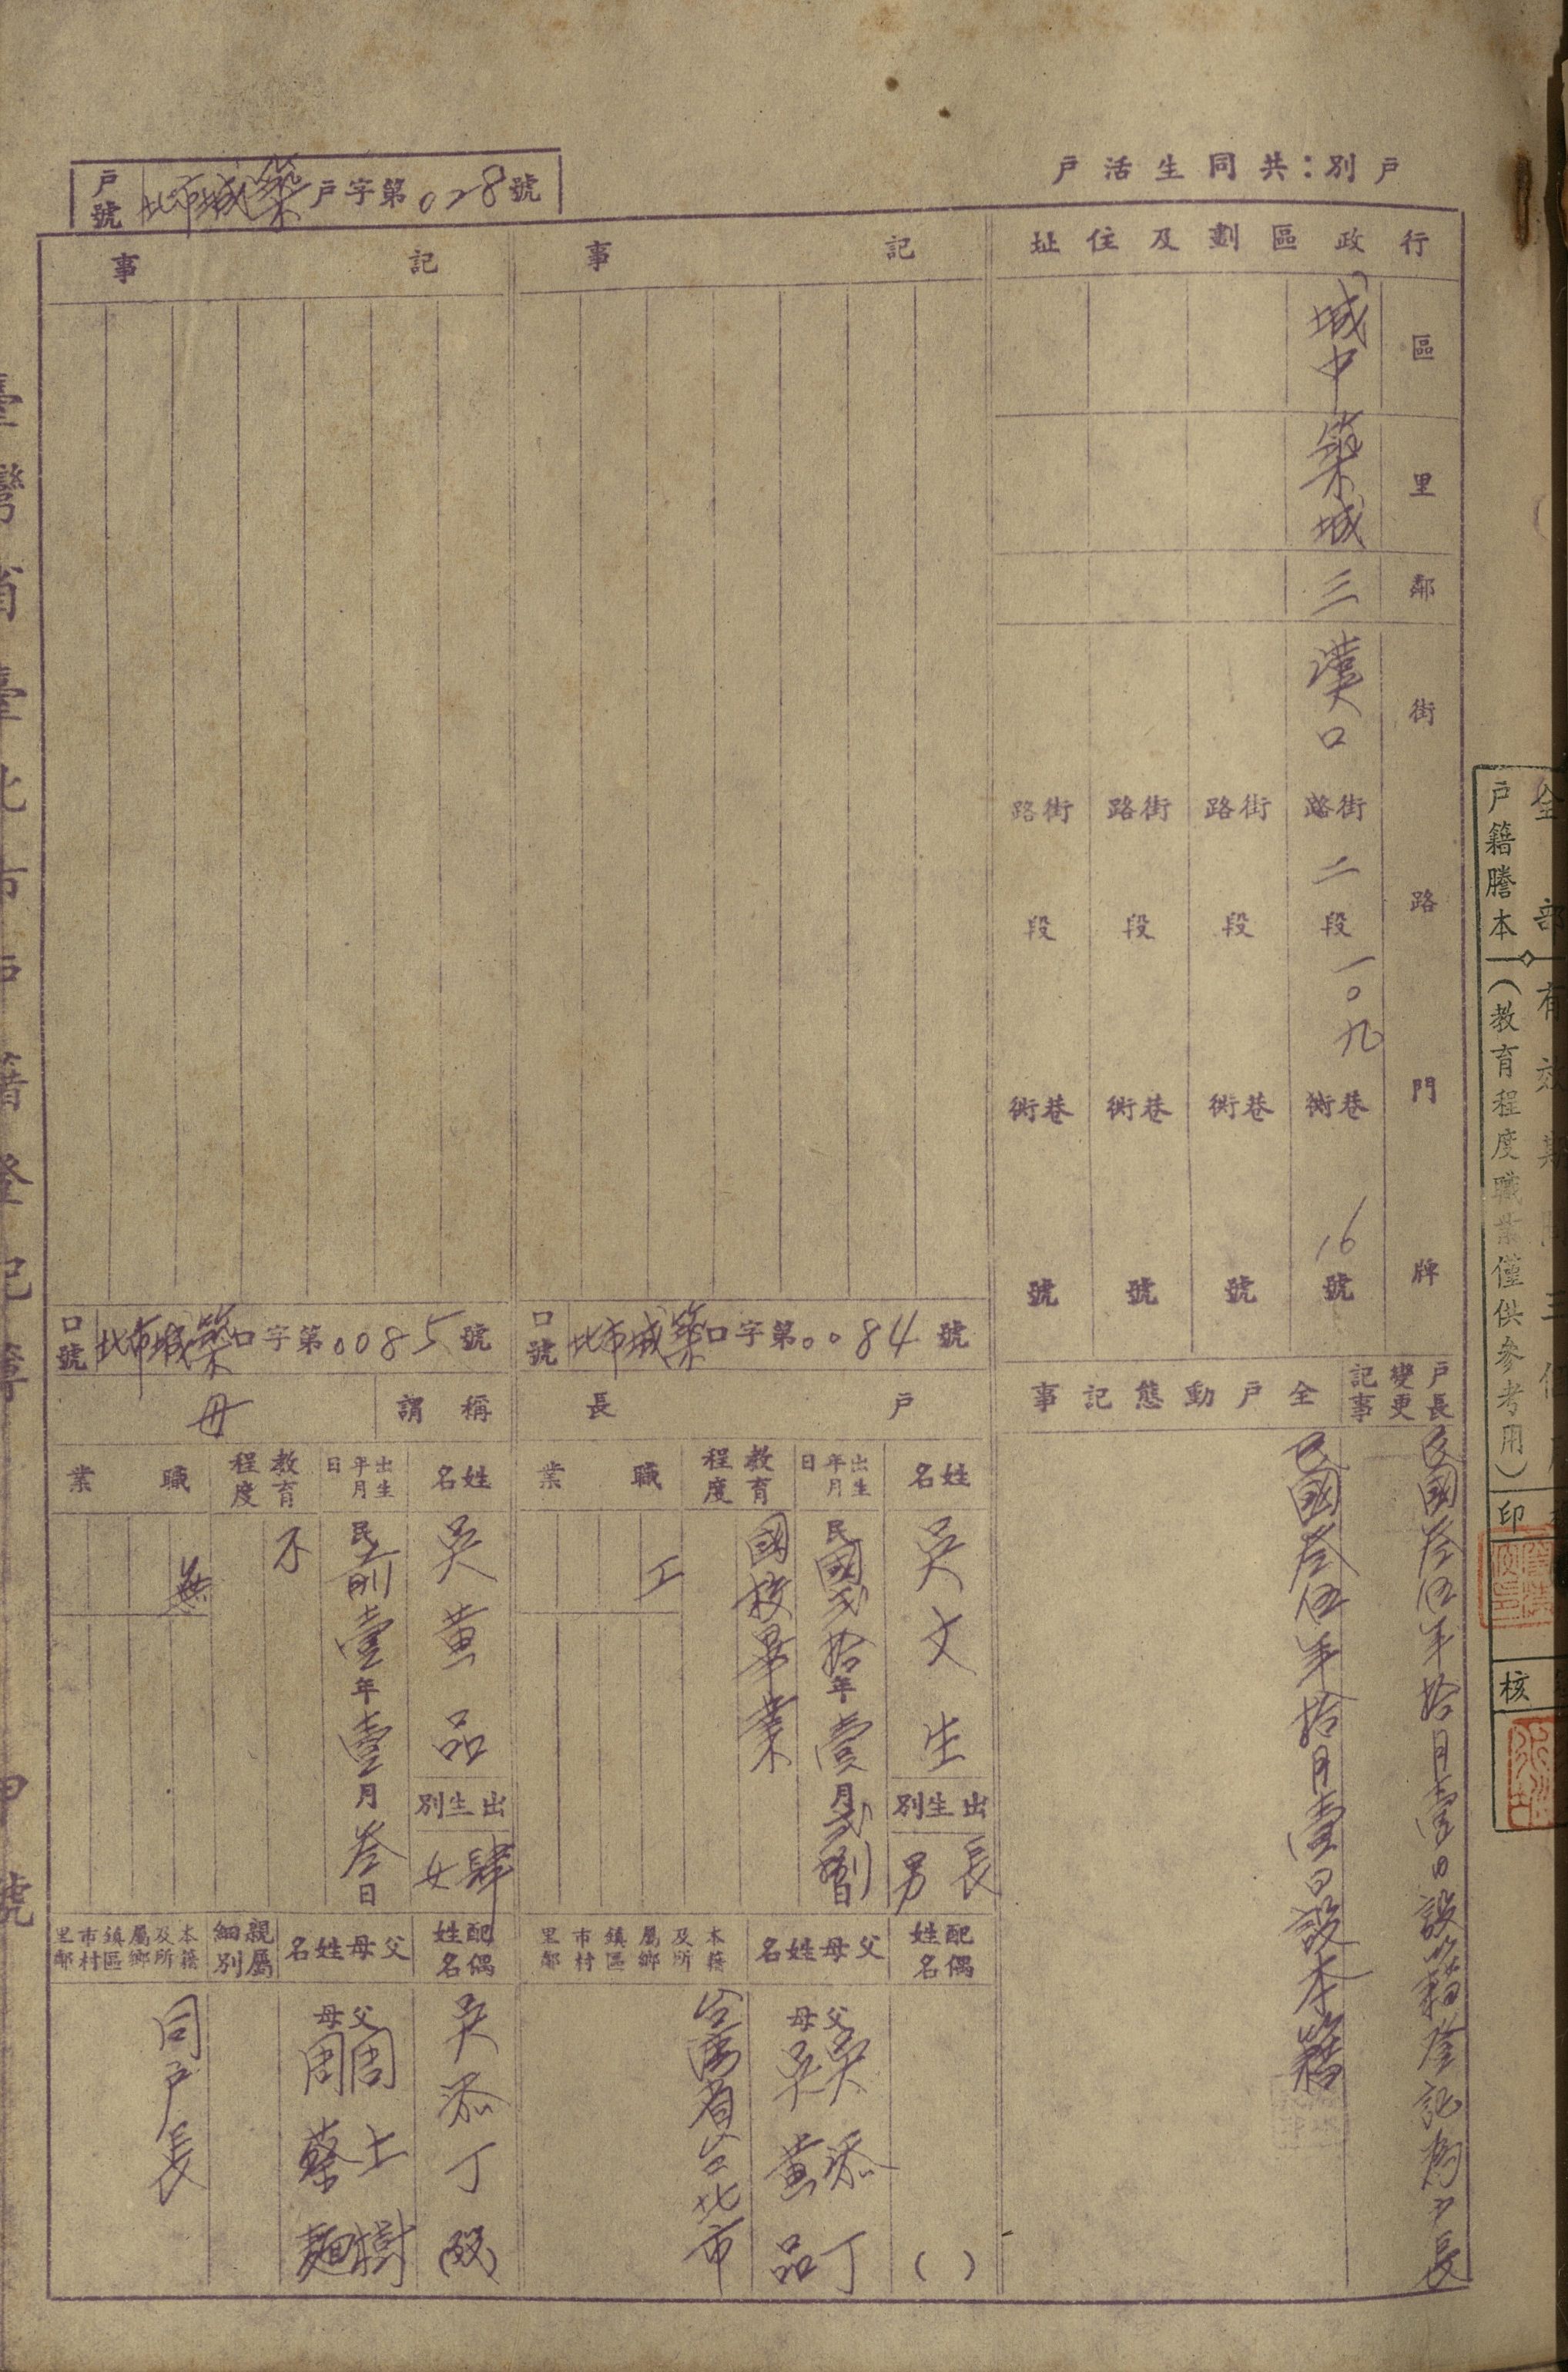 戶別：共同生活戶
戶號 北市城築戶字第028號
行政區劃及住址
區 里 鄰 街路門牌
城中
築城
三
漢口 街路 二段 一〇九 巷衖 16號
街路 段 巷衖 號
街路 段 巷衖 號
街路 段 巷衖 號
戶長變更記事
民國叁伍年拾月壹日設籍登記為戶長
全戶動態記事
民國叁伍年拾月壹日設本籍
記事
口號 北市城築口字第0084號
戶長
姓名
吳文生
出生別
長男
出生年月日
民國貳拾年壹月貳日
教育程度
國校畢業
職業
工
配偶姓名
( )
父母姓名
父 吳添丁
母 吳黃品
本籍及所屬鄉鎮區市村里鄰
台灣省台北市
記事
口號 北市城築口字第0085號
稱謂
母
姓名
吳黃品
出生別
肆女
出生年月日
民前壹年壹月叁日
教育程度
不
職業
無
配偶姓名
吳添丁(歿)
父母姓名
父 周土樹
母 周蔡麵
親屬細別
本籍及所屬鄉鎮區市村里鄰
同戶長
臺灣省臺北市戶籍登記簿
戶籍謄本（教育程度職業僅供參考用）印
核